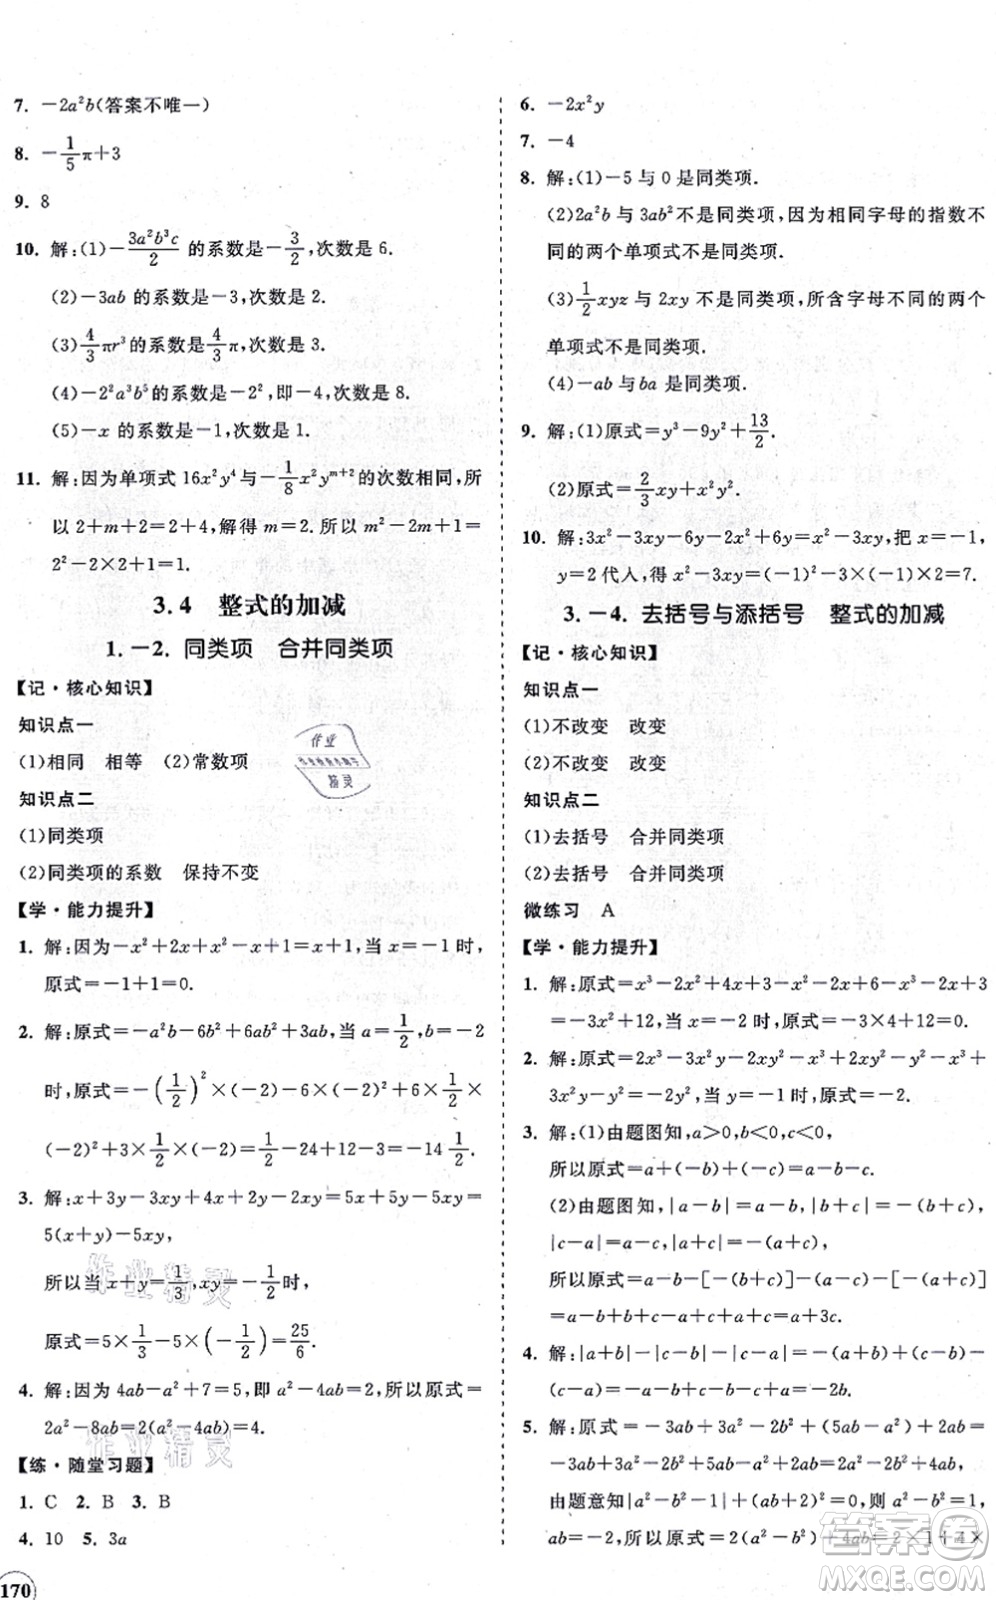 7. －2a²b(答案不唯一)
8. －1/5π＋3
9. 8
10. 解:(1)－3a²b³c/2 的系数是－3/2,次数是 6.
(2)－3ab 的系数是－3,次数是 2.
(3)4/3πr³的系数是4/3π,次数是 3.
(4)－2²a³b⁵的系数是－2²,即－4,次数是 8.
(5)－x 的系数是－1,次数是 1.
11. 解:因为单项式 16x²y⁴与－1/8x²yᵐ⁺²的次数相同,所
以 2＋m＋2＝2＋4,解得 m＝2. 所以 m²－2m＋1＝
2²－2×2＋1＝1.
3.4 整式的加减
1.－2. 同类项 合并同类项
【记·核心知识】
知识点一
(1)相同 相等 (2)常数项
知识点二
(1)同类项
(2)同类项的系数 保持不变
【学·能力提升】
1. 解:因为－x²＋2x＋x²－x＋1＝x＋1,当 x＝－1 时,
原式＝－1＋1＝0.
2. 解:原式＝－a²b－6b²＋6ab²＋3ab,当 a＝1/2,b＝－2
时,原式＝－(1/2)²×(－2)－6×(－2)²＋6×1/2×
(－2)²＋3×1/2×(－2)＝1/2－24＋12－3＝－14 1/2.
3. 解:x＋3y－3xy＋4x＋2y－2xy＝5x＋5y－5xy＝
5(x＋y)－5xy,
所以当 x＋y＝1/3,xy＝－1/2时,
原式＝5×1/3－5×(－1/2)＝25/6.
4. 解:因为 4ab－a²＋7＝5,即 a²－4ab＝2,所以原式＝
2a²－8ab＝2(a²－4ab)＝4.
【练·随堂习题】
1. C 2. B 3. B
4. 10 5. 3a
170
6. －2x²y
7. －4
8. 解:(1)－5 与 0 是同类项.
(2)2a²b 与 3ab²不是同类项,因为相同字母的指数不
同的两个单项式不是同类项.
(3)1/2xyz 与 2xy 不是同类项,所含字母不同的两个
单项式不是同类项.
(4)－ab 与 ba 是同类项.
9. 解:(1)原式＝y³－9y²＋13/2.
(2)原式＝2/3xy＋x²y².
10. 解:3x²－3xy－6y－2x²＋6y＝x²－3xy,把 x＝－1,
y＝2 代入,得 x²－3xy＝(－1)²－3×(－1)×2＝7.
3.－4. 去括号与添括号 整式的加减
【记·核心知识】
知识点一
(1)不改变 改变
(2)不改变 改变
知识点二
(1)去括号 合并同类项
(2)去括号 合并同类项
微练习 A
【学·能力提升】
1. 解:原式＝x³－2x²＋4x＋3－x²－2x＋6－x³－2x＋3
＝－3x²＋12,当 x＝－2 时,原式＝－3×4＋12＝0.
2. 解:原式＝2x³－3x²y－2xy²－x³＋2xy²－y³－x³＋
3x²y－y³＝－2y³,当 y＝－1 时,原式＝－2y³＝2.
3. 解:(1)由题图知,a＞0,b＜0,c＜0,
所以原式＝a＋(－b)－(－c)＝a－b＋c.
(2)由题图知,|a－b|＝a－b,|b＋c|＝－(b＋c),
|c－a|＝－(c－a),
所以原式＝a－b－[－(b＋c)]－(－c)－[－(c－a)]
＝a－b＋b＋c－a＋c＋c＝－a＋3c.
4. 解:|a＋b|－|c－b|＝－(a＋b)－(c－b)＝－a－b－
c＋b＝－a－c.
5. 解:原式＝－3ab＋3a²－(2b²＋(5ab－a²)＋2ab)＝
作业精灵
答案圈
MXQE.COM